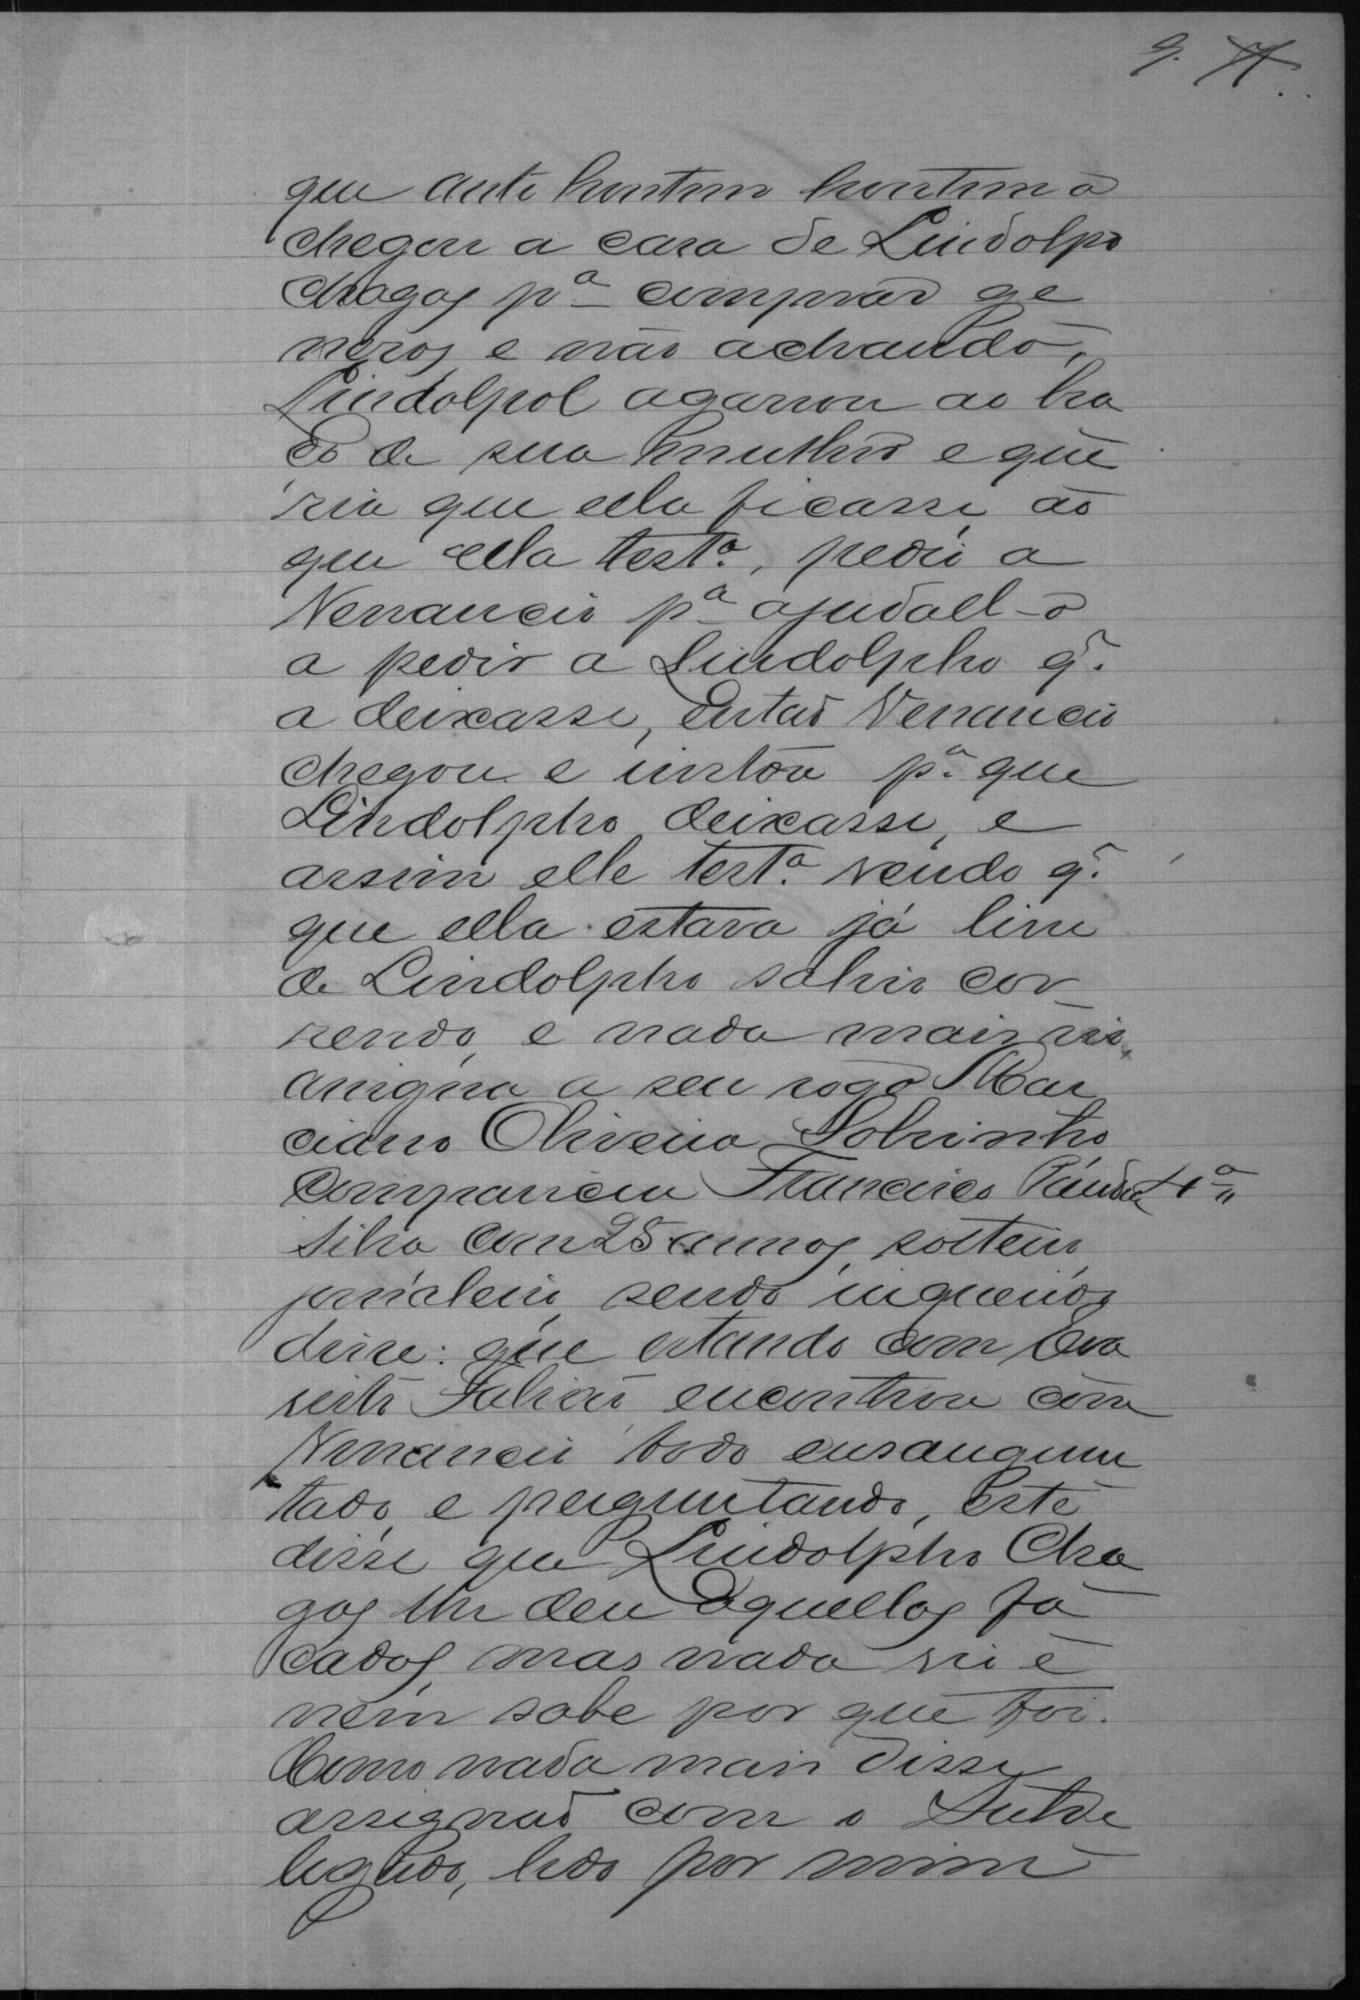 9.
que ante hontem hontem a
chegou a casa de Lindolpo
Chagas pª comprar ge
neros, e não achando,
Lindolpol agarrou ao bra
ço de sua mulher e que
ria que ella ficasse, ao
que ella testª, pediu a
Venancio pª ajudall-o
a pedir a Lindolpho q.
a deixasse, Entao Venancio
chegou e instou pª que
Lindolpho deixasse, e
assim elle testª vendo q.
que ella estava já livre
de Lindolpho sahio cor
rendo, e nada mais vio,
assigna a seu rogo Mar
ciano Oliveira Sobrinho
Compareceu Francisco 4ª
Silva com 25 annos, solteiro
jornaleiro, sendo inquerido
disse: que estando com Eva
risto encontrou com
Venancio todo ensanguen
tado, e perguntando, Este
disse que Lindolpho Cha
gas lhe deu aquellas fa
cadas, mas nada viu e
nem sabe por que foi.
Como nada mais disse
assignao com o Subde
legado, lido por mim